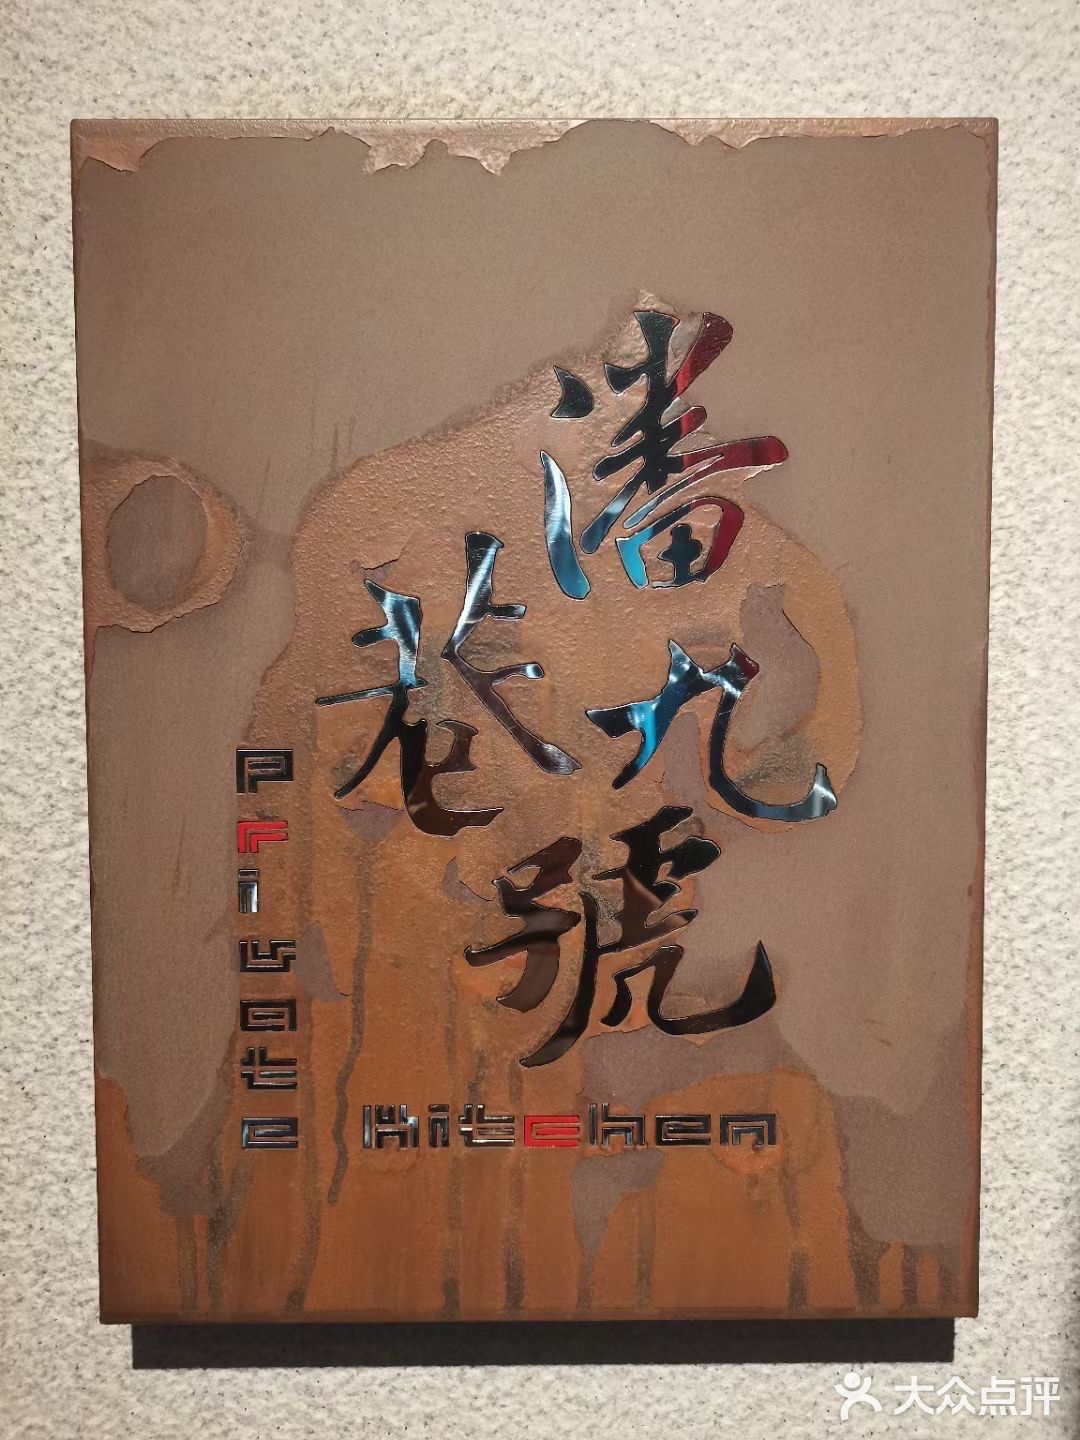 潘巷九號
Private
Kitchen
大众点评